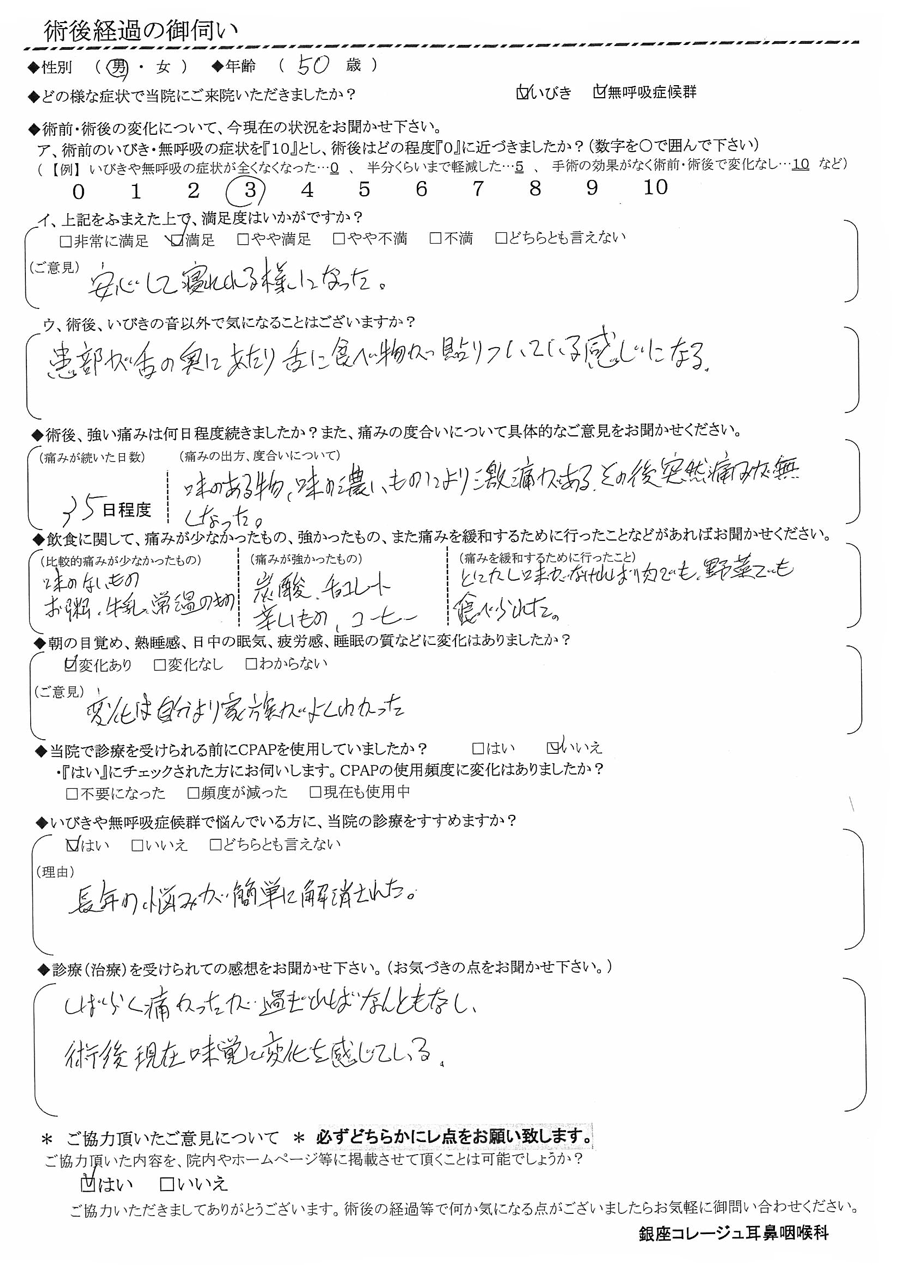 術後経過の御伺い
◆性別 （ 男 ・ 女 ） ◆年齢 （ 50 歳 ）
◆どの様な症状で当院にご来院いただきましたか？ ☑いびき ☑無呼吸症候群
◆術前・術後の変化について、今現在の状況をお聞かせ下さい。
ア、術前のいびき・無呼吸の症状を『10』とし、術後はどの程度『0』に近づきましたか？（数字を○で囲んで下さい）
（【例】 いびきや無呼吸の症状が全くなくなった…0 、 半分くらいまで軽減した…5 、 手術の効果がなく術前・術後で変化なし…10 など）
0 1 2 3 4 5 6 7 8 9 10
イ、上記をふまえた上で、満足度はいかがですか？
□非常に満足 ☑満足 □やや満足 □やや不満 □不満 □どちらとも言えない
（ご意見）
安心して寝れれる様になった。
ウ、術後、いびきの音以外で気になることはございますか？
患部が舌の奥にあたり舌に食べ物がつ貼りついている感じになる。
◆術後、強い痛みは何日程度続きましたか？また、痛みの度合いについて具体的なご意見をお聞かせください。
（痛みが続いた日数） （痛みの出方、度合いについて）
35日程度
味のある物、味の濃いものにより激痛がある。その後突然痛みが無
しなった。
◆飲食に関して、痛みが少なかったもの、強かったもの、また痛みを緩和するために行ったことなどがあればお聞かせください。
（比較的痛みが少なかったもの） （痛みが強かったもの） （痛みを緩和するために行ったこと）
味のないもの
お粥、牛乳、常温のもの
炭酸、チョコレート
辛いもの、コーヒー
とにかく味がなければ肉でも、野菜でも
食べられた。
◆朝の目覚め、熟睡感、日中の眠気、疲労感、睡眠の質などに変化はありましたか？
☑変化あり □変化なし □わからない
（ご意見）
変化は自分より家族がよくわかった
◆当院で診療を受けられる前にCPAPを使用していましたか？ □はい ☑いいえ
・『はい』にチェックされた方にお伺いします。CPAPの使用頻度に変化はありましたか？
□不要になった □頻度が減った □現在も使用中
◆いびきや無呼吸症候群で悩んでいる方に、当院の診療をすすめますか？
☑はい □いいえ □どちらとも言えない
（理由）
長年の悩みが簡単に解消された。
◆診療（治療）を受けられての感想をお聞かせ下さい。（お気づきの点をお聞かせ下さい。）
しばらく痛かったが過ぎればなんともなし、
術後現在味覚に変化を感じている。
＊ ご協力頂いたご意見について ＊ 必ずどちらかにレ点をお願い致します。
ご協力頂いた内容を、院内やホームページ等に掲載させて頂くことは可能でしょうか？
☑はい □いいえ
ご協力いただきましてありがとうございます。術後の経過等で何か気になる点がございましたらお気軽に御問い合わせください。
銀座コレージュ耳鼻咽喉科